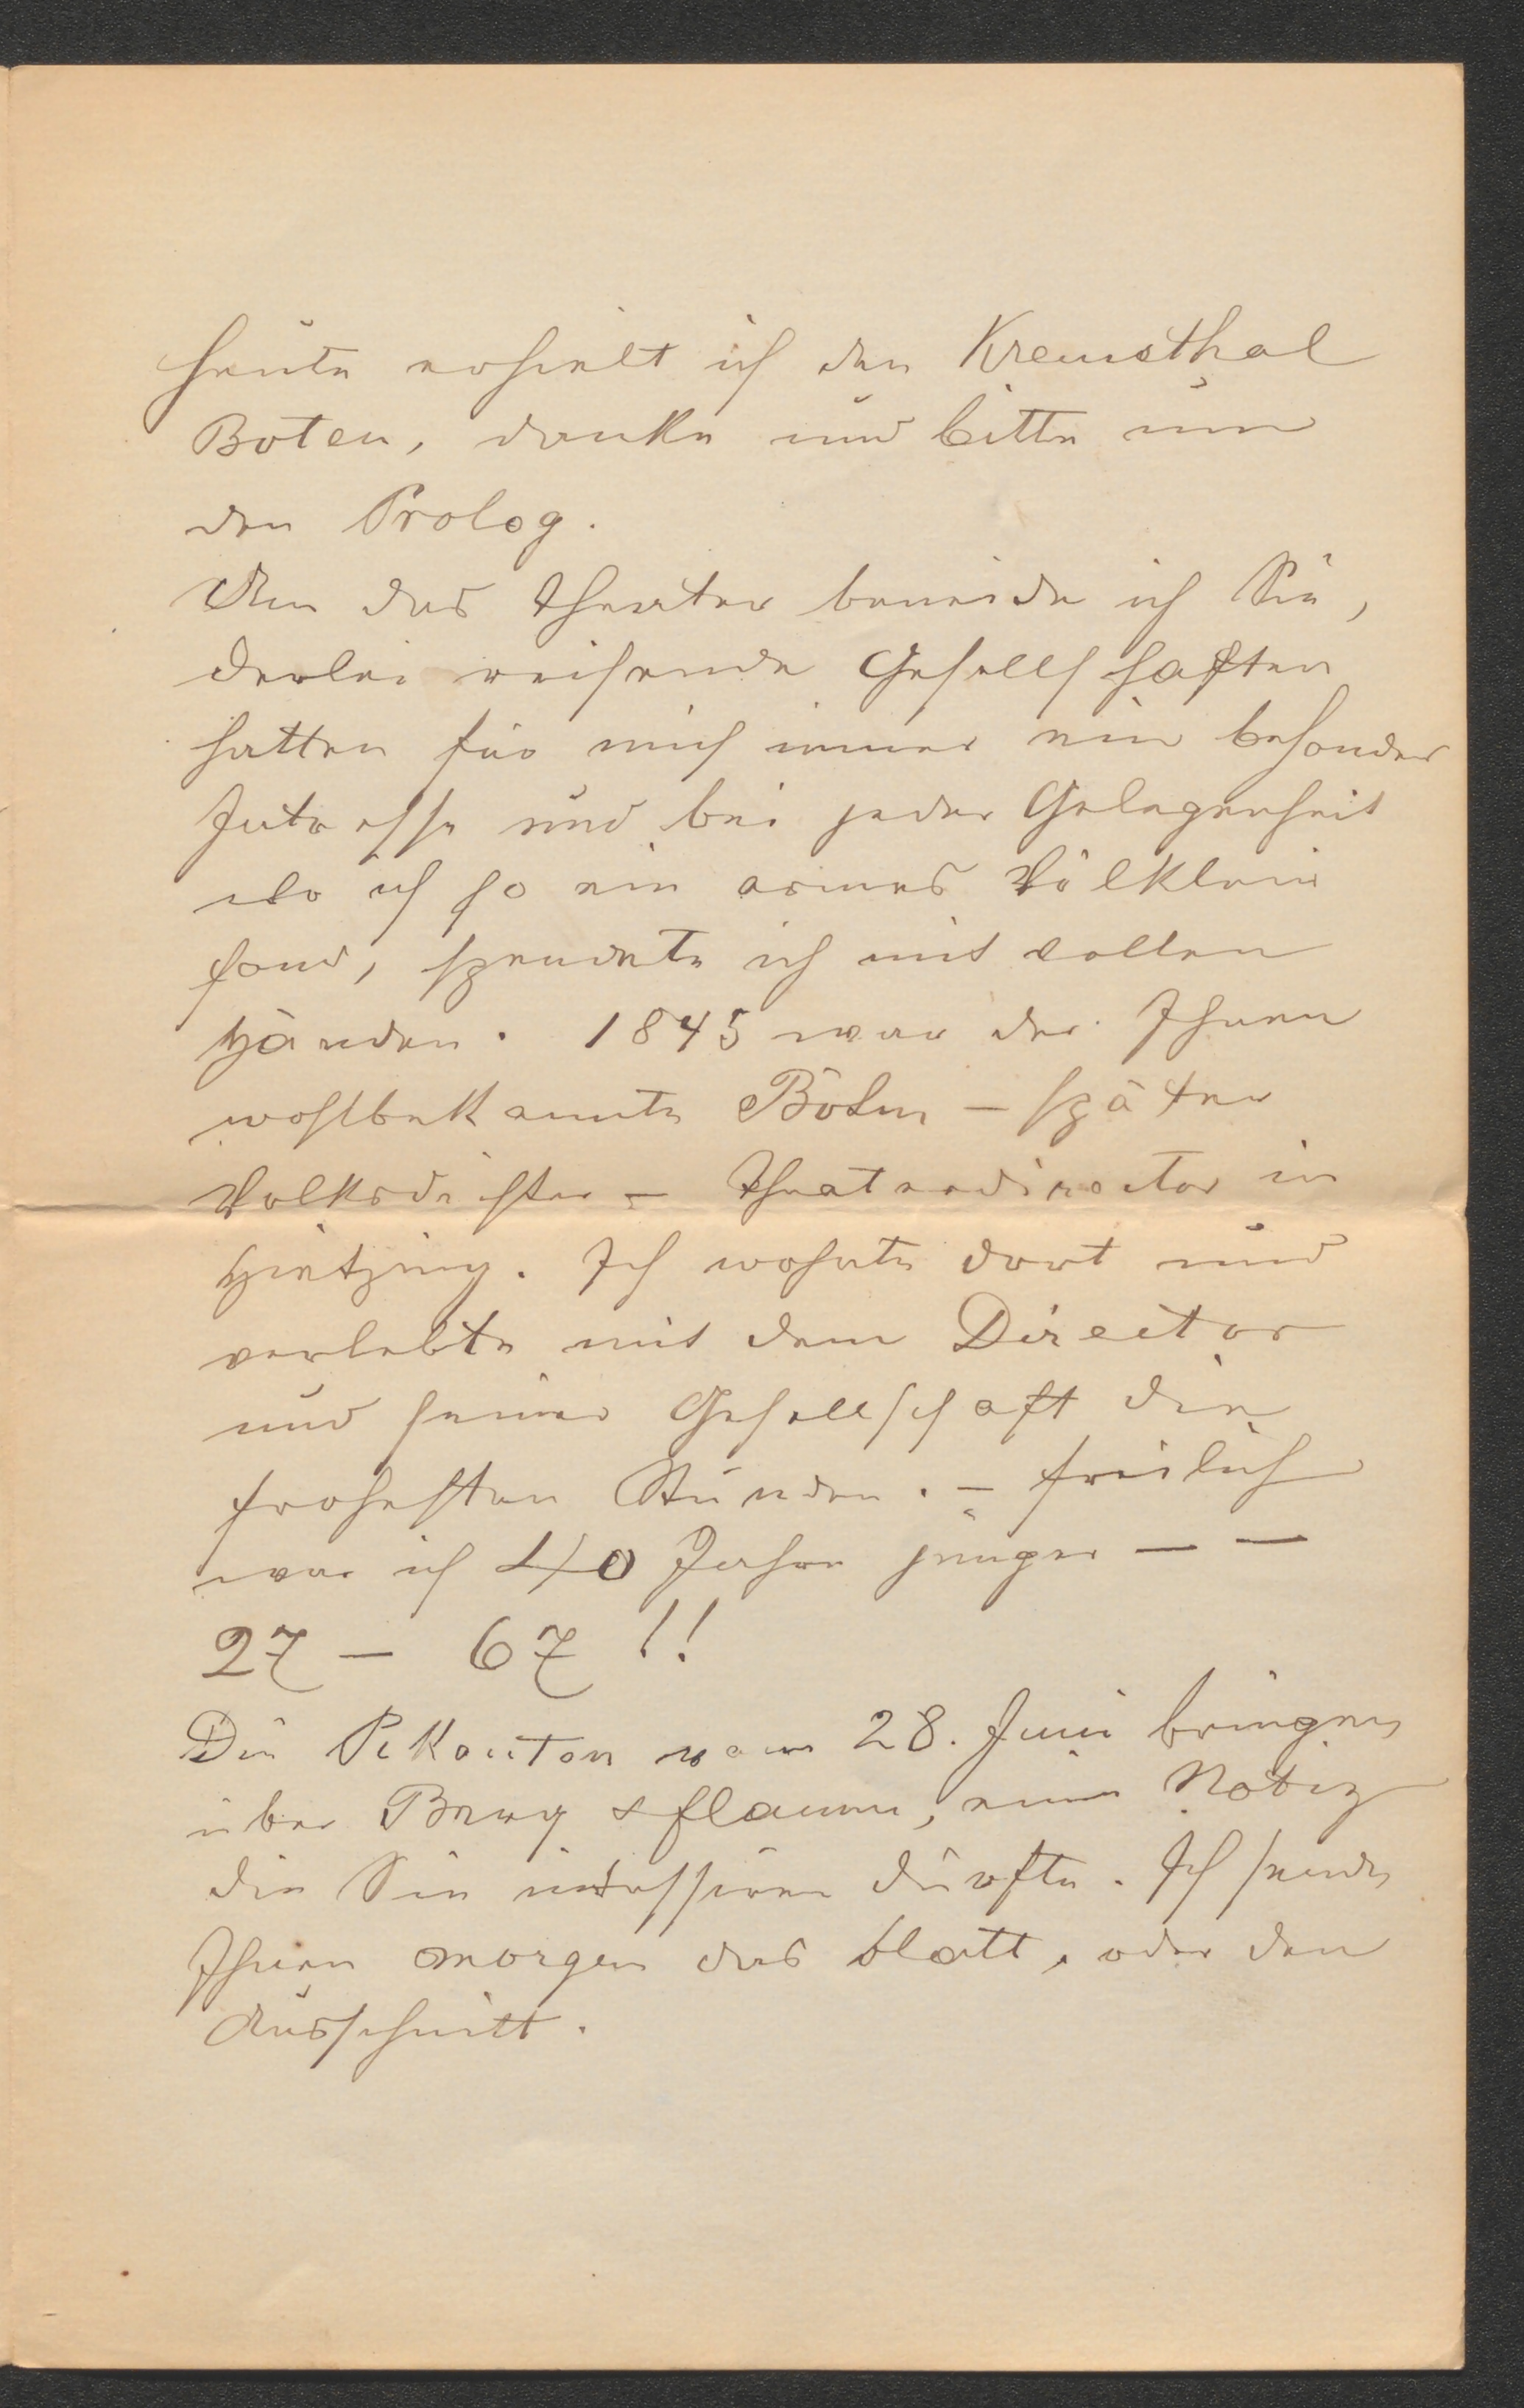 heute erhielt ich den Kremsthal
Boten, danke und bitte um
den Prolog.
Um das Theater beneide ich Sie,
derlei reisende Gesellschaften
hatten für mich immer ein besonder
Interesse und bei jeder Gelegenheit
wo ich so ein armes Völklein
fand, spendete ich mit vollen
Händen. 1845 war der Ihnen
wohlbekannte Böhm – später
Volksdichter – Theaterdirector in
Hietzing. Ich wohnte dort und
verlebte mit dem Director
und seiner Gesellschaft die
frohesten Stunden. – freilich
war ich 40 Jahre jünger – –
27 – 67 !!
Die Pikanten vom 28. Juni bringen
über Berg & flamm, eine Notiz
die Sie intressiren dürfte. Ich sende
Ihnen morgen das blatt, oder den
Ausschnitt.